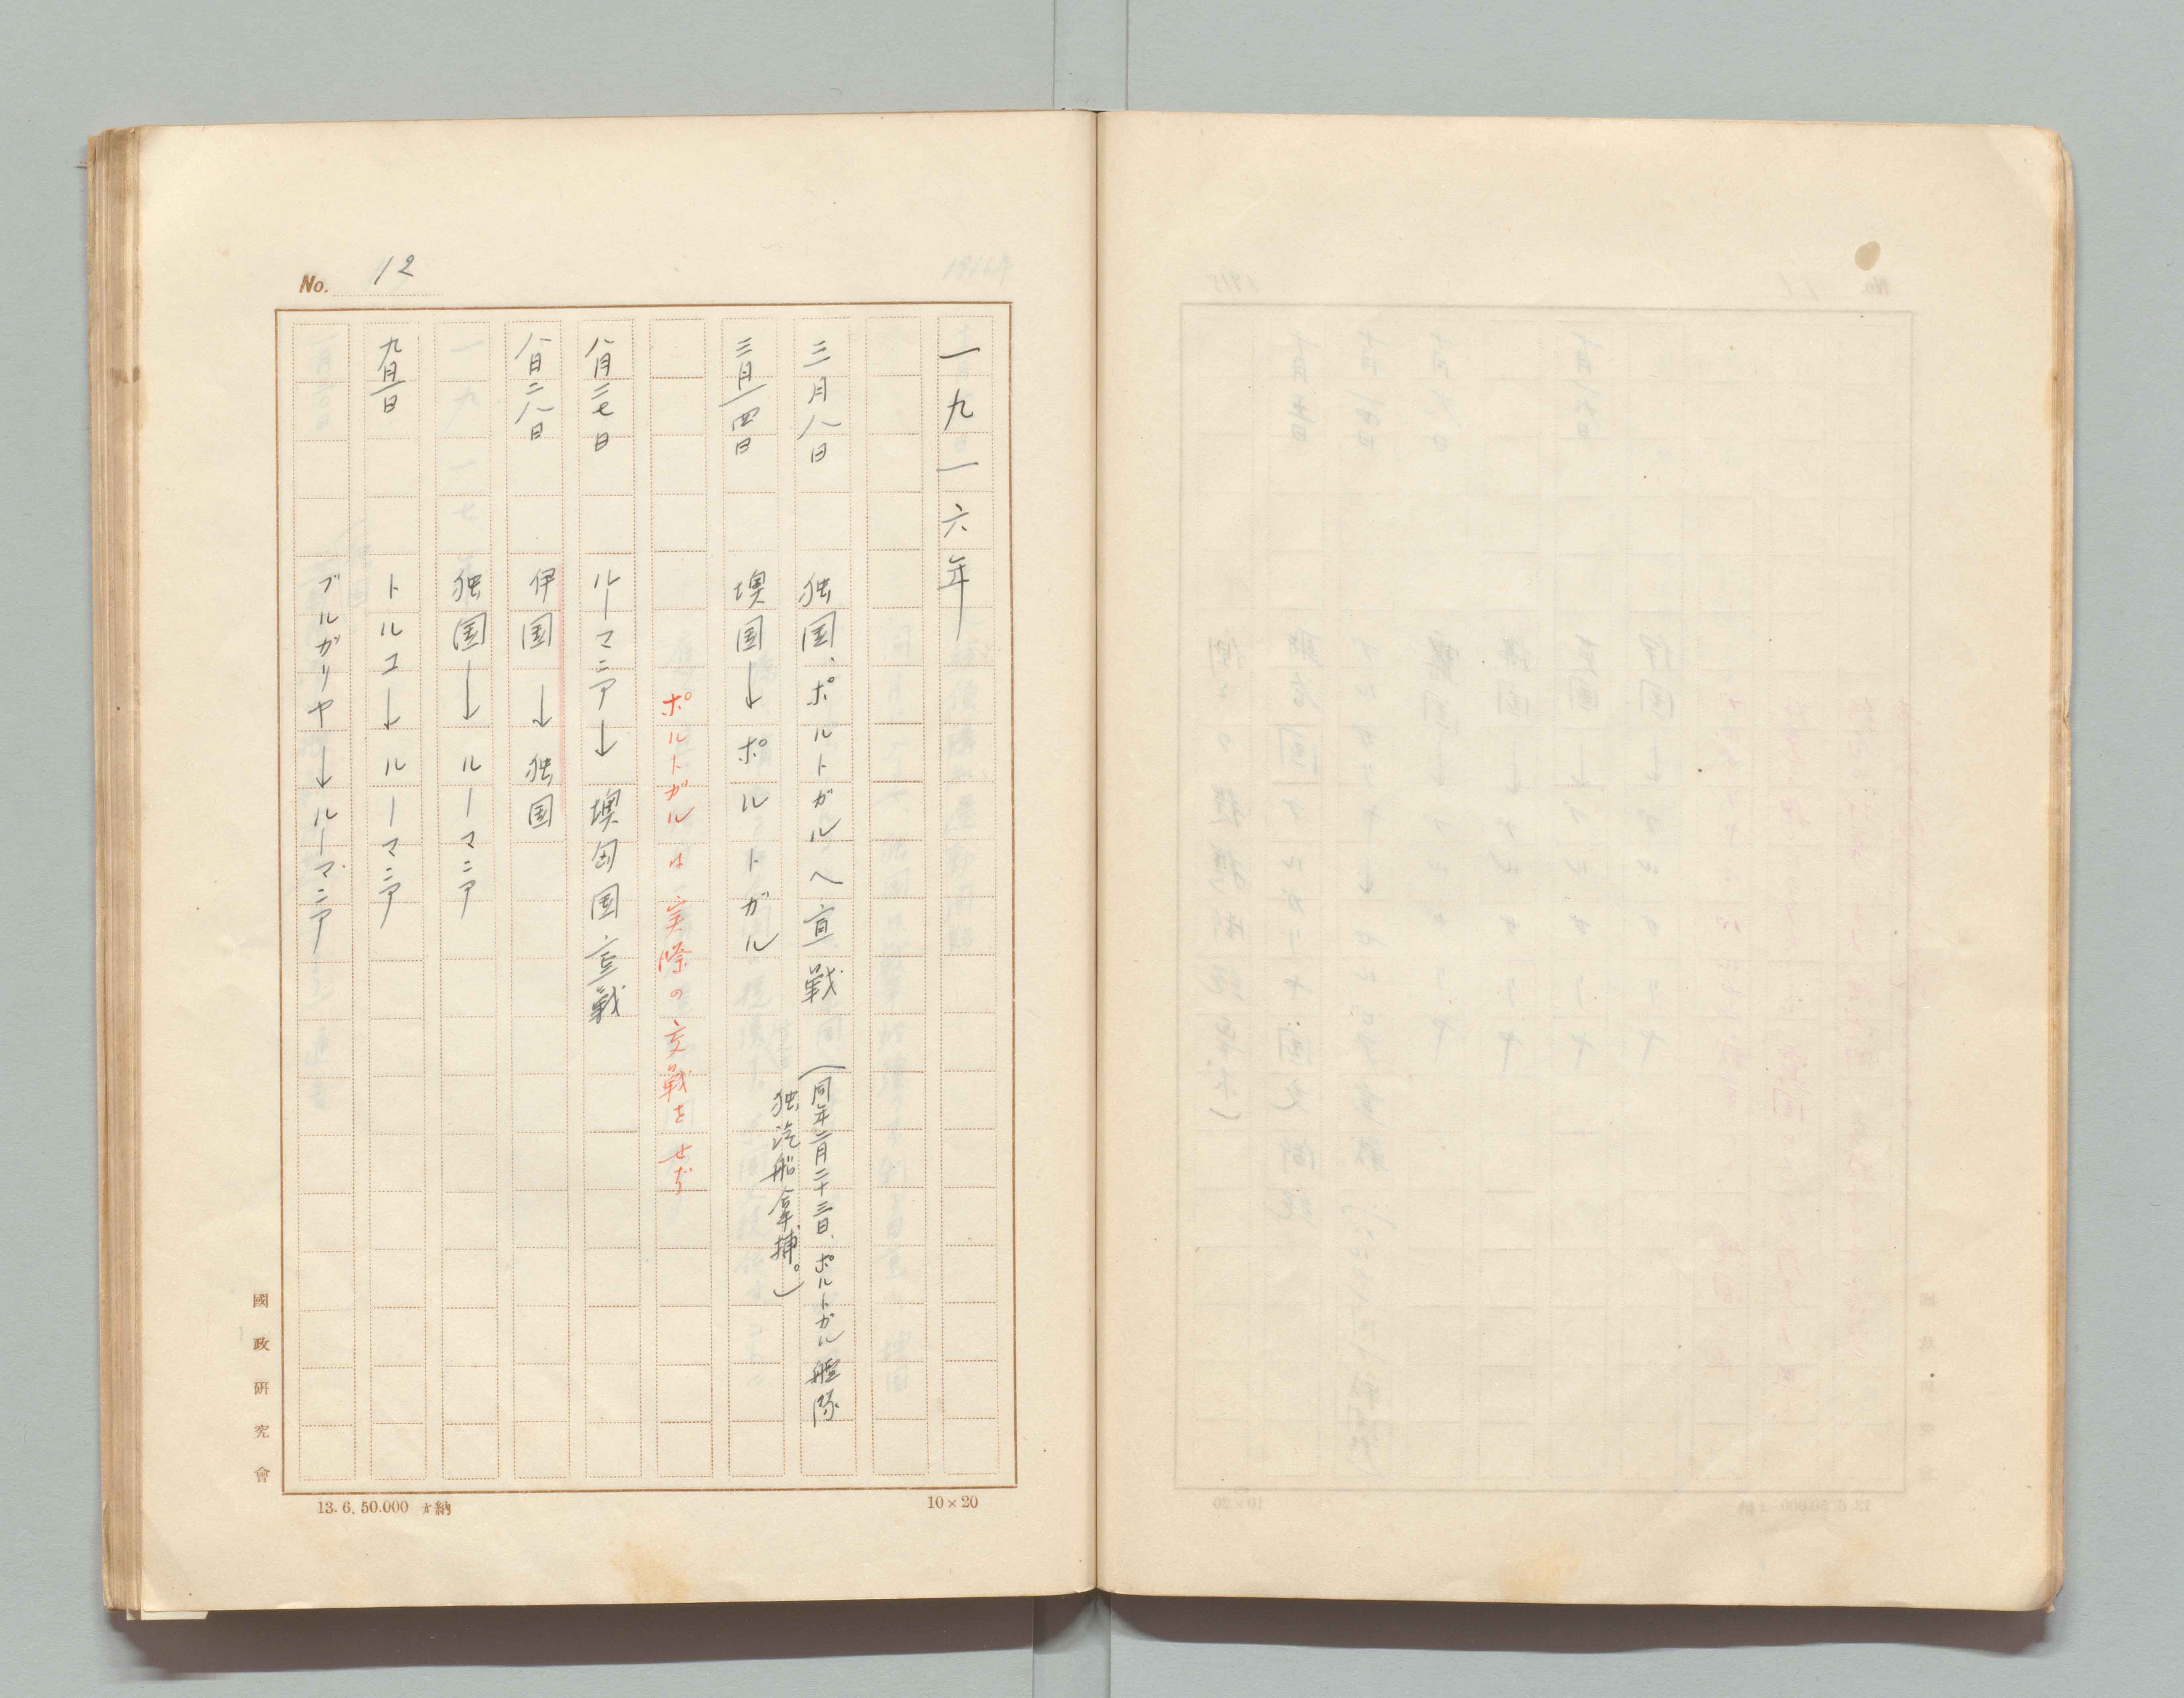 No. 12
一九一六年
三月八日 独国、ポルトガルへ宣戦
(同年二月二十三日、ポルトガル艦隊
独汽船拿捕。)
三月一四日 墺国→ポルトガル
ポルトガルは実際の交戦をせず
八月二七日 ルーマニア→墺匈国宣戦
八月二八日 伊国→独国
独国→ルーマニア
九月一日 トルコ→ルーマニア
ブルガリヤ→ルーマニア
國政研究會
13.6.50.000 納
10×20